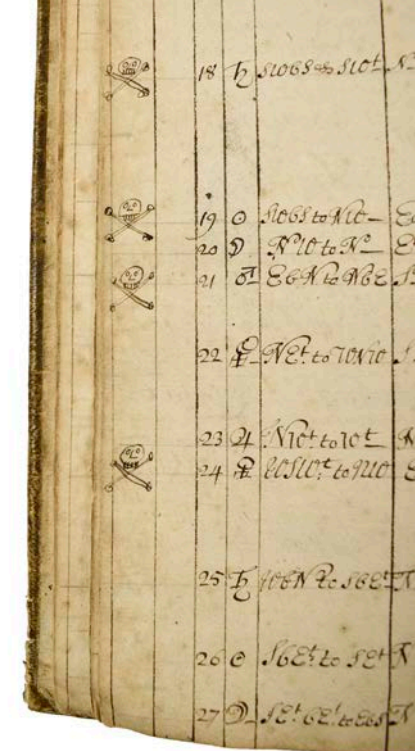 18 ♄ SWbS & SWt N
19 ☉ SWbS to NW E
20 ☽ NW to N E
21 ♂ EbN to NbE
22 ☿ NEt to WNW
23 ♃ NWt to Wt N
24 ♀ WSWt to
25 ♄ WbN to SbEt N
26 ☉ SbEt to SEt N
27 ☽ SEt to EbS N